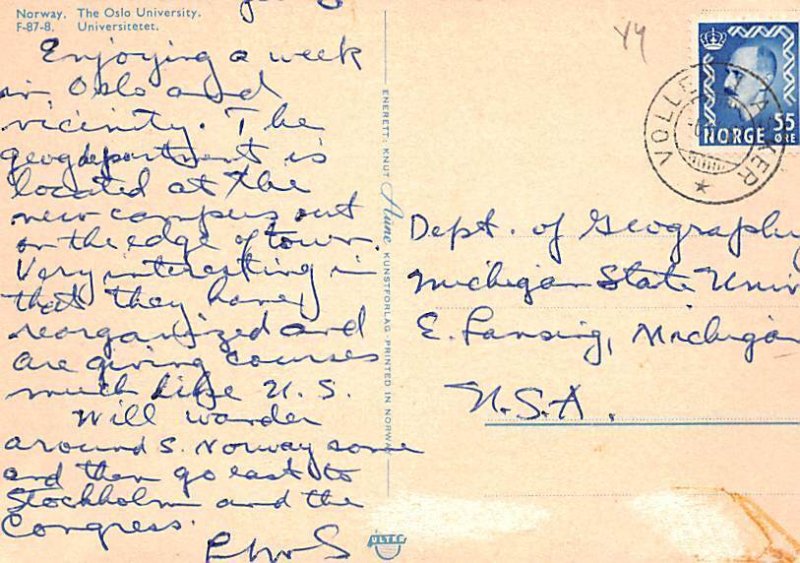 Norway. The Oslo University.
F-87-8. Universitetet.
Enjoying a week
in Oslo and
vicinity. The
geog department is
located at the
new campus out
on the edge of town.
Very interesting in
that they have
reorganized and
are giving courses
much like U.S.
Will wander
around S. Norway some
and then go east to
Stockholm and the
Congress.
ENERETT: KNUT Aune KUNSTFORLAG PRINTED IN NORWAY
ULTRA
44
NORGE 55 ØRE
VOLLE
Dept. of Geography
Michigan State Univ
E. Lansing, Michigan
U.S.A.